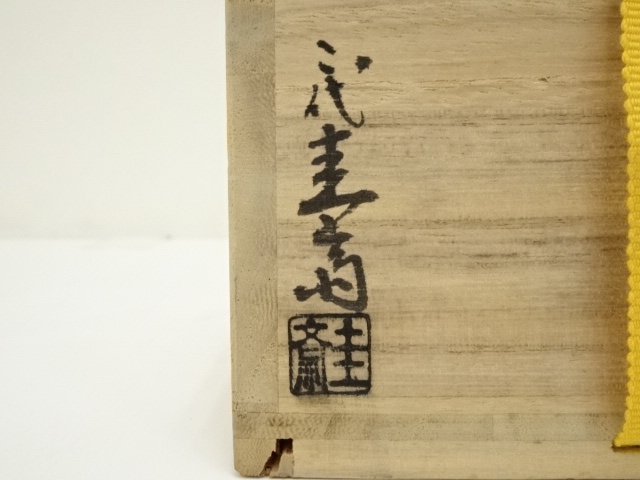 二代
圭斎
圭斎